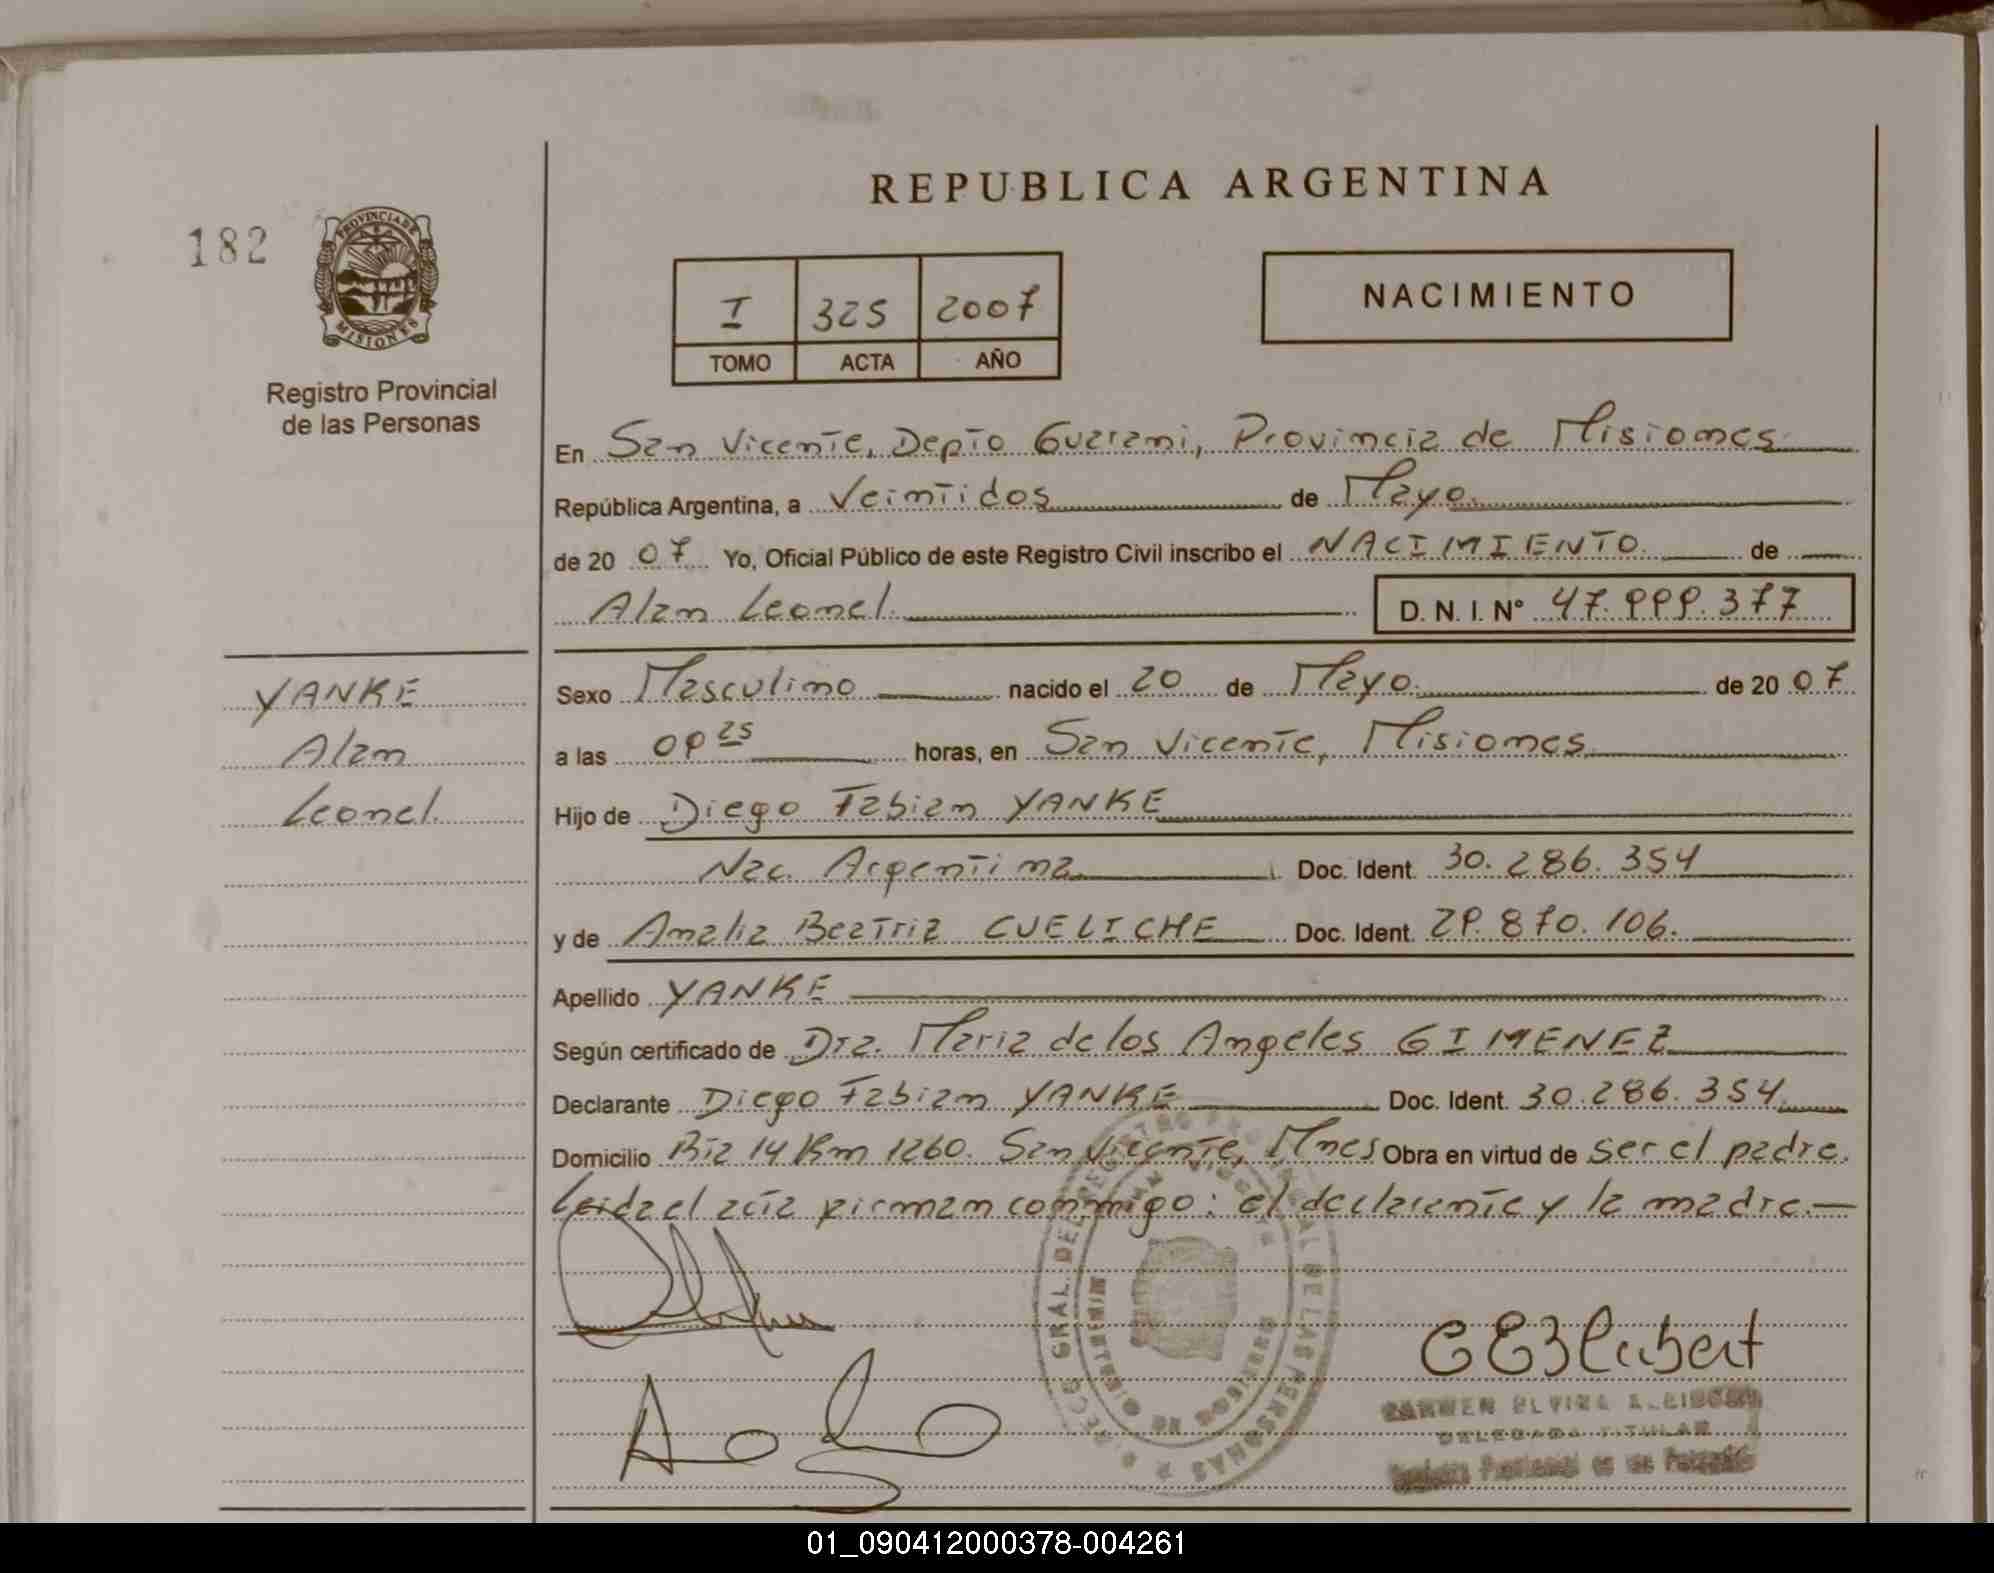 REPUBLICA ARGENTINA
182
PROVINCIA DE
MISIONES
Registro Provincial
de las Personas
I 325 2007
TOMO ACTA AÑO
NACIMIENTO
En San Vicente, Depto Guarani, Provincia de Misiones
República Argentina, a Veintidos de Mayo.
de 20 07 Yo, Oficial Público de este Registro Civil inscribo el NACIMIENTO de
Alan Leonel. D. N. I. N° 47.999.377
YANKE
Alan
Leonel.
Sexo Masculino nacido el 20 de Mayo. de 20 07
a las 09 25 horas, en San Vicente, Misiones
Hijo de Diego Fabian YANKE
Nac. Argentina Doc. Ident. 30.286.354
y de Amalia Beatriz CUELICHE Doc. Ident. 29.870.106.
Apellido YANKE
Según certificado de Dra. Maria de los Angeles GIMENEZ
Declarante Diego Fabian YANKE Doc. Ident. 30.286.354
Domicilio 14 Km 1260. San Vicente, Mnes Obra en virtud de ser el padre.
Leida el acta firman conmigo: el declarante y la madre.—
GRAL. DEL REGISTRO DE LAS PERSONAS
CARMEN ELVIRA
DELEGADA TITULAR
01_090412000378-004261